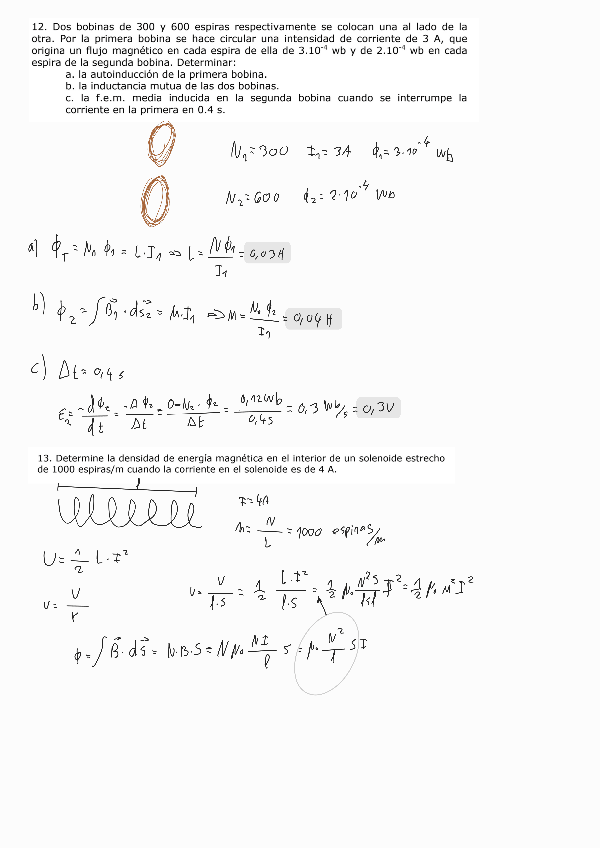 12. Dos bobinas de 300 y 600 espiras respectivamente se colocan una al lado de la
otra. Por la primera bobina se hace circular una intensidad de corriente de 3 A, que
origina un flujo magnético en cada espira de ella de 3.10⁻⁴ wb y de 2.10⁻⁴ wb en cada
espira de la segunda bobina. Determinar:
a. la autoinducción de la primera bobina.
b. la inductancia mutua de las dos bobinas.
c. la f.e.m. media inducida en la segunda bobina cuando se interrumpe la
corriente en la primera en 0.4 s.
N₁=300 I₁= 3A ϕ₁= 3·10⁻⁴ Wb
N₂=600 ϕ₂= 2·10⁻⁴ Wb
a) ϕ_T = N₁ ϕ₁ = L·I₁ => L = Nϕ₁/I₁ = 0,03H
b) ϕ₂ = ∫B₁·ds₂ = M·I₁ => M = N₂ ϕ₂/I₁ = 0,04 H
c) Δt = 0,4 s
ε₂ = -dϕ₂/dt = -Δϕ₂/Δt = 0-N₂·ϕ₂/Δt = 0,12Wb/0,4s = 0,3 Wb/s = 0,3V
13. Determine la densidad de energía magnética en el interior de un solenoide estrecho
de 1000 espiras/m cuando la corriente en el solenoide es de 4 A.
l
I=4A
n = N/L = 1000 espiras/m
U = 1/2 L·I²
u = U/V u = U/l·S = 1/2 L·I²/l·S = 1/2 μ₀ N²S/l·S·l I² = 1/2 μ₀ n² I²
ϕ = ∫B·ds = N·B·S = N μ₀ NI/l S = μ₀ N²/l S I